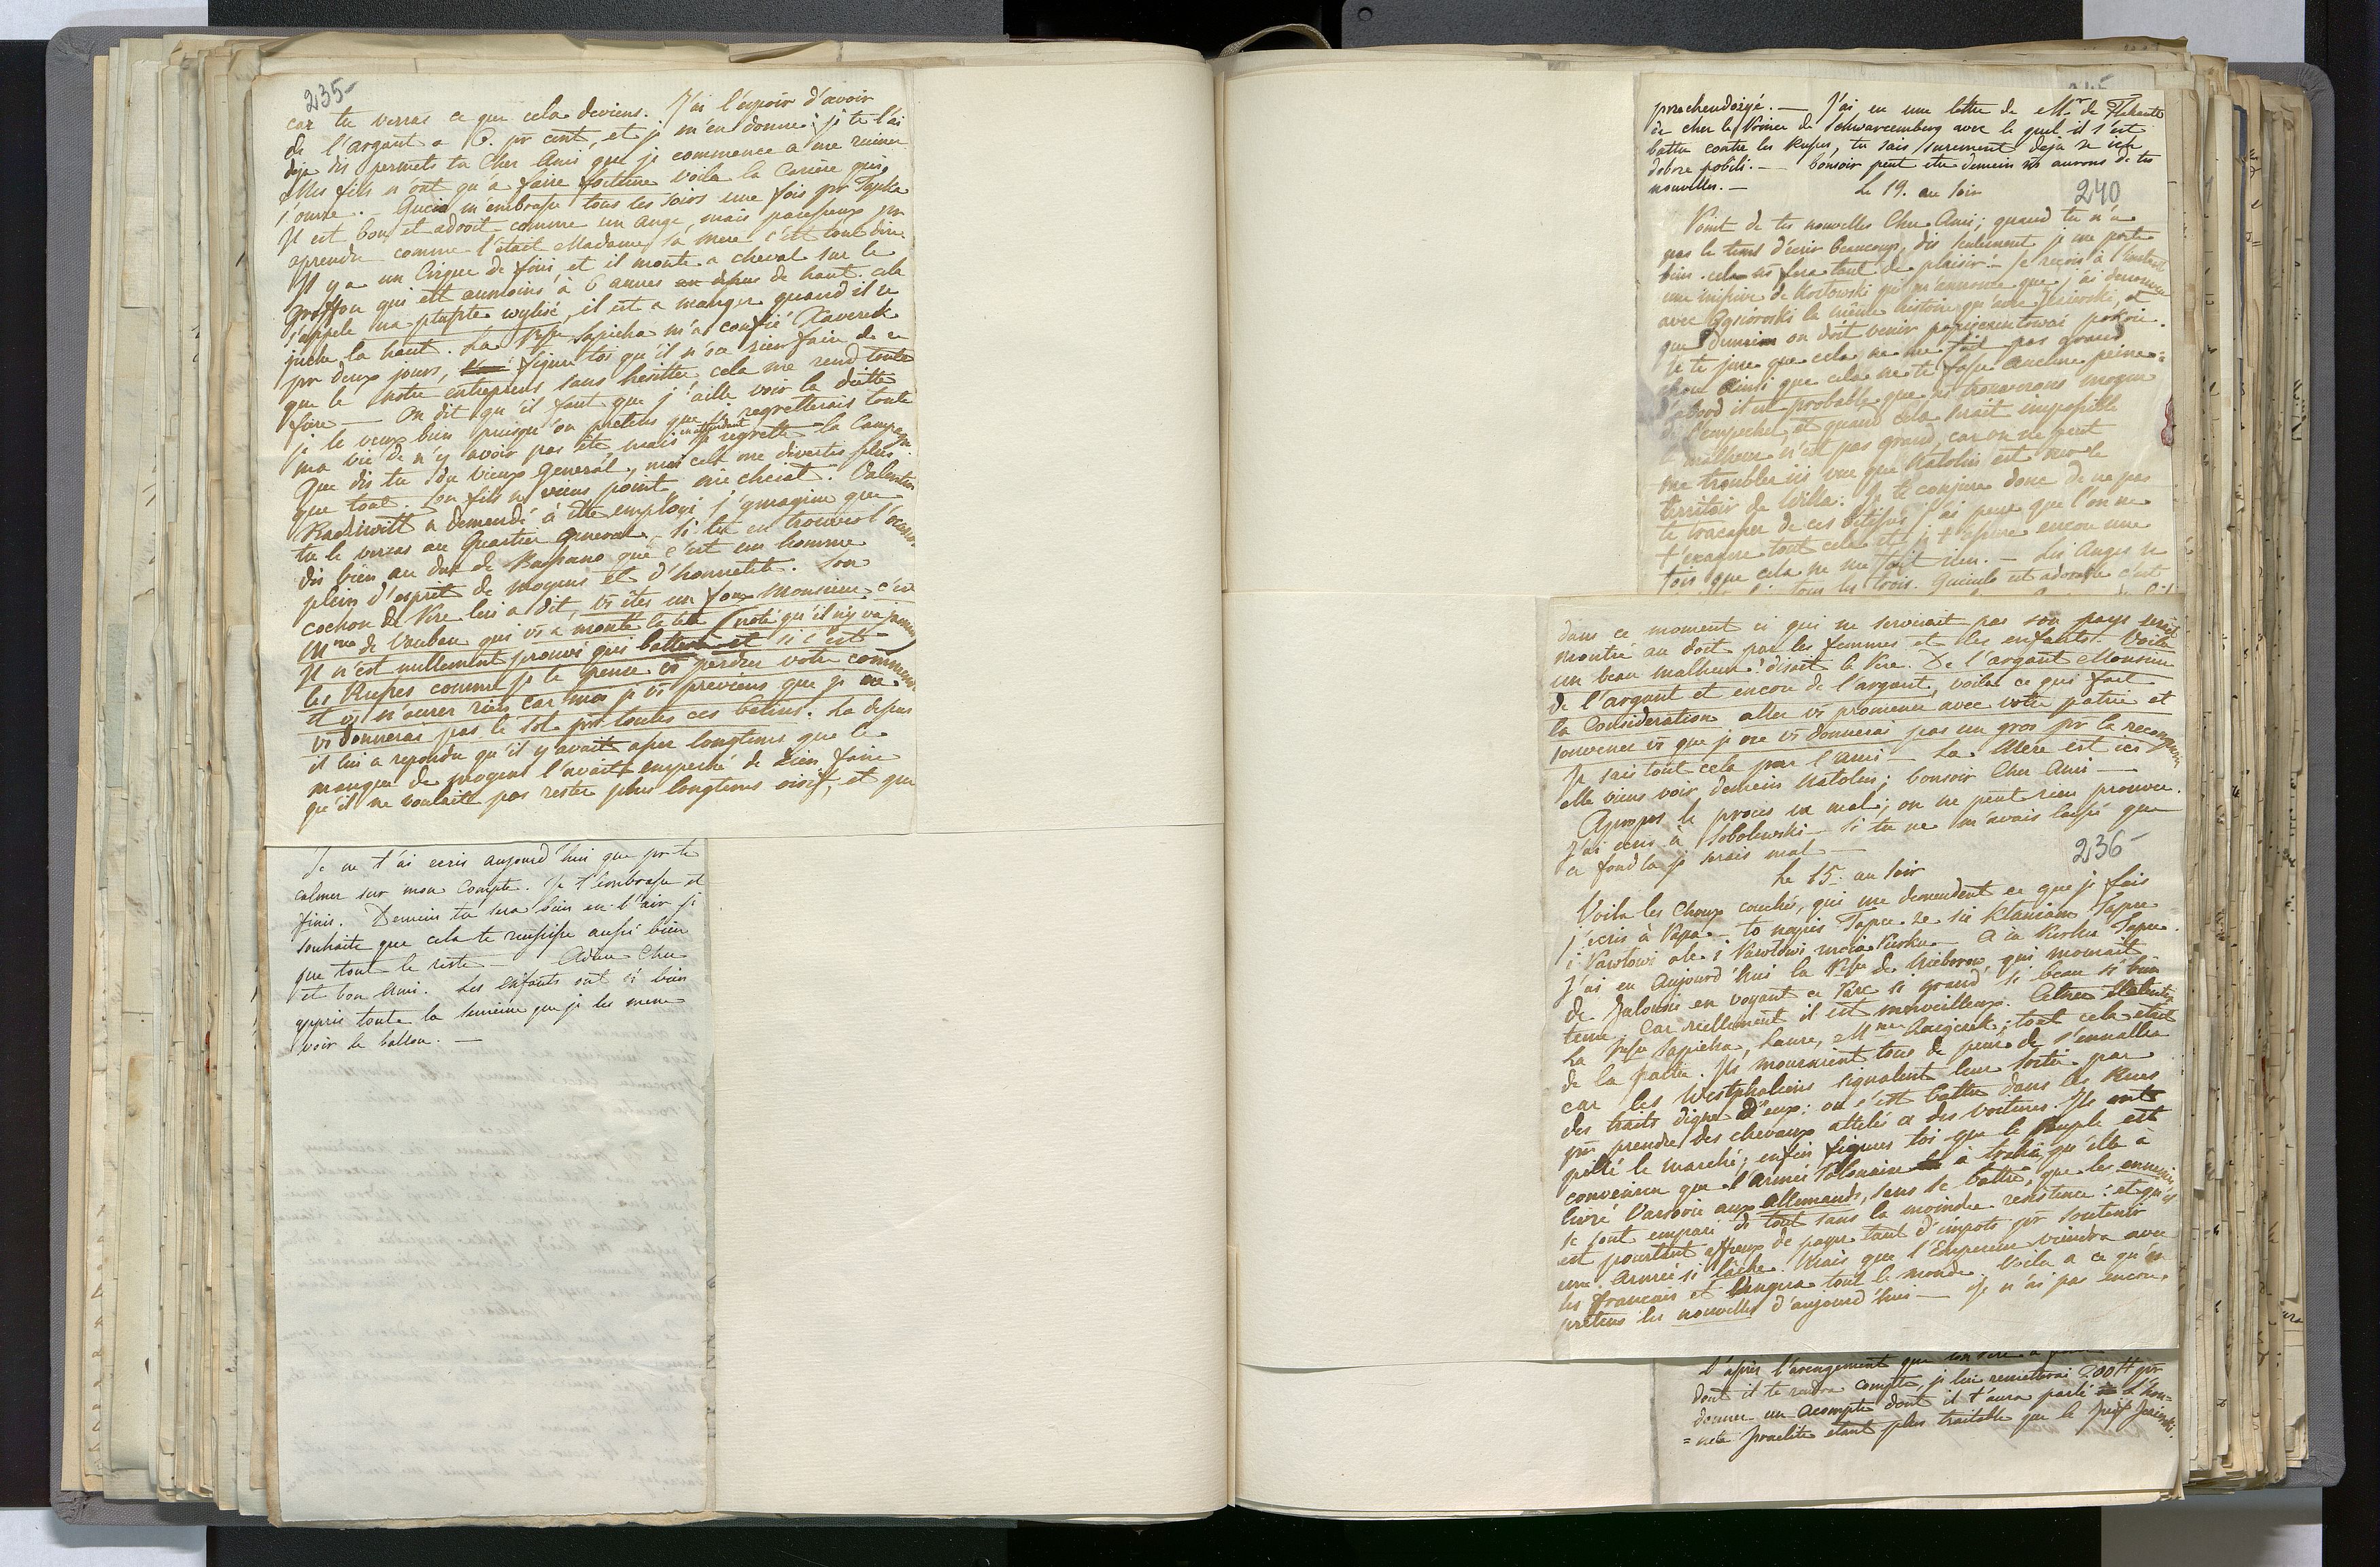 235
car tu verras ce que cela deviens. J'ai l'espoir d'avoir
de l'argant a 6. pr cent, et je m'en donne; je te l'ai
deja dis permets tu Cher Ami que je commence a me ruiner
Mes fils n'ont qu'a faire fortune voila la Cariere qui
s'ouvre. - Gucio m'embrasse tous les soirs une fois pr Papka
Il est bon et adroit comme un ange, mais paresseux pr
aprendre comme l'était Madame sa mere c'est tout dire
Il y a un Cirque de fini et il monte a cheval sur le
Griffon qui est aumoins à 6 aunes de haut. cela
s'appele na ptastre wylisć, il est a manger quand il se
juche la haut. La Psse Sapieha m'a confié Xaverek
pr deux jours, figure toi qu'il n'a rien fair de ce
que le notre entreprens sans hesitter cela me rend toute
fiere - On dit qu'il faut que j'aille voir la diette
je le veux bien puisqu'on pretens que je regretterais toute
ma vie de n'y avoir pas été, mais en attendant je regrette la Campagne
Que dis tu du vieux General, moi cela me divertis plus
que tout. Son fils ne viens point nie chciał. Valentin
Radziwill a demandé à être employé j'ymagine que
tu le verras au Quartier General - Si tu en trouves l'occasion
dis bien au duc de Bassano que c'est un homme
plein d'esprit de moyens et d'honnetete. Son
cochon de Pere lui a dit, vs êtes un fou Monsieur c'est
Mme de Vauban qui vs a monté la tete (noté qu'il n'y va jamais)
Il n'est nullement prouvé qui battera et si c'est
les Russes comme je le pense vs perdrez votre
et vs n'aurez rien car moi je vs previens que je ne
vs donnerai pas le sol pr toutes ces betises. La dessus
il lui a repondu qu'il y avait assez longtems que le
manque de moyens l'avait empeché de rien faire
qu'il ne voulait pas rester plus longtems oisif, et que
Je ne t'ai ecris aujourd'hui que pr te
calmer sur mon compte. Je t'embrasse et
finis. Demain tu sera bien en l'air je
souhaite que cela te reussisse aussi bien
que tout le reste - Adieu Cher
et bon Ami. Les enfants ont si bien
appris toute la semaine que je les mene
voir le ballon. -
J'ai eu une lettre de Mr de
de cher le Prince de Schwarcemberg avec le quel il s'est
battu contre les Russes, tu sais surement deja ze ich
dobrze pobili. - bonsoir peut etre demain ns aurons de tes
nouvelles. -
Le 19. au soir
240
Point de tes nouvelles Cher Ami; quand tu n'a
pas le tems d'écrir beaucoup, dis seulement je me porte
bien cela ns fera tant de plaisir! - Je reçois à l'instant
une missive de Kozłowski qui m'annonce que
avec la même histoire qu'avec et
que demain on doit venir pokoie.
Je te jure que cela ne me fait pas grand
chose ainsi que cela ne te fasse aucune peine
d'abord il est probable que ns trouverons moyen
de l'empecher, et quand cela serait impossible
le malheur n'est pas grand, car on ne peut
me troubler ici vue que Natolin est sur le
territoir de Willa. Je te conjure donc de ne pas
te tracasser de ces bétises, j'ai peur que l'on ne
t'exagere tout cela et je t'assure encore une
fois que cela ne me fait rien. - Les Anges se
tous les trois. Guciulo est adorable c'est
dans ce moment ci qui ne servirait pas son pays serait
montré au doit par les femmes et les enfants. Voila
un beau malheur! disait le Pere. De l'argant Monsieur
de l'argant et encore de l'argant, voila ce qui fait
la Consideration aller vs promener avec votre patrie et
souvenez vs que je ne vs donnerai pas un gros pr la
Je sais tout cela par l'Ami - La Mere est ici
elle viens voir demain Natolin; bonsoir Cher Ami -
Apropos le procès va mal; on ne peut rien prouver.
J'ai ecris à Sobolewski - Si tu ne m'avais laissé que
ce fond la je serais mal -
236
Le 15. au soir
Voila les Choux couchés, qui me demendent ce que je fais
j'ecris à Papa - to napisz Tapce ze sie kłaniam Tapce
i Pawłowi ale i Pawłowi
J'ai eu Aujourd'hui la Psse de Nieborow qui mourait
de Jalousie en voyant ce Parc si grand si beau si bien
tenu. Car reellement il est merveilleux.
La Psse Sapieha, Laure, Mme tout cela etait
de la partie. Ils mouraient tous de peur de s'enaller
car les Westphaliens signalent leur sortie par
des traits digne d'eux; on s'est battu dans les Rues
pr prendre des chevaux attelés a des voitures. Ils ont
pillé le marché; enfin figures toi que le Peuple est
convaincu que l'Armée Polonaise à trahie, qu'elle à
livré Varsovie aux Allemands, sans se battre, que les ennemis
se sont emparé de tout sans la moindre resistence! et qu'il
est pourtant affreux de payer tant d'impots pr soutenir
une Armée si lache. Mais que l'Empereur viendra avec
les francais et vengera tout le monde. Voila a ce qu'on
pretens les nouvelles d'aujourd'hui - Je n'ai pas encore
D'après l'arengement que
dont il te rendra compte, je lui remetterai 200 ## pr
donner un acompte dont il t'aura parlé l'hon=
=nete Israelite etant plus traitable que le Juif